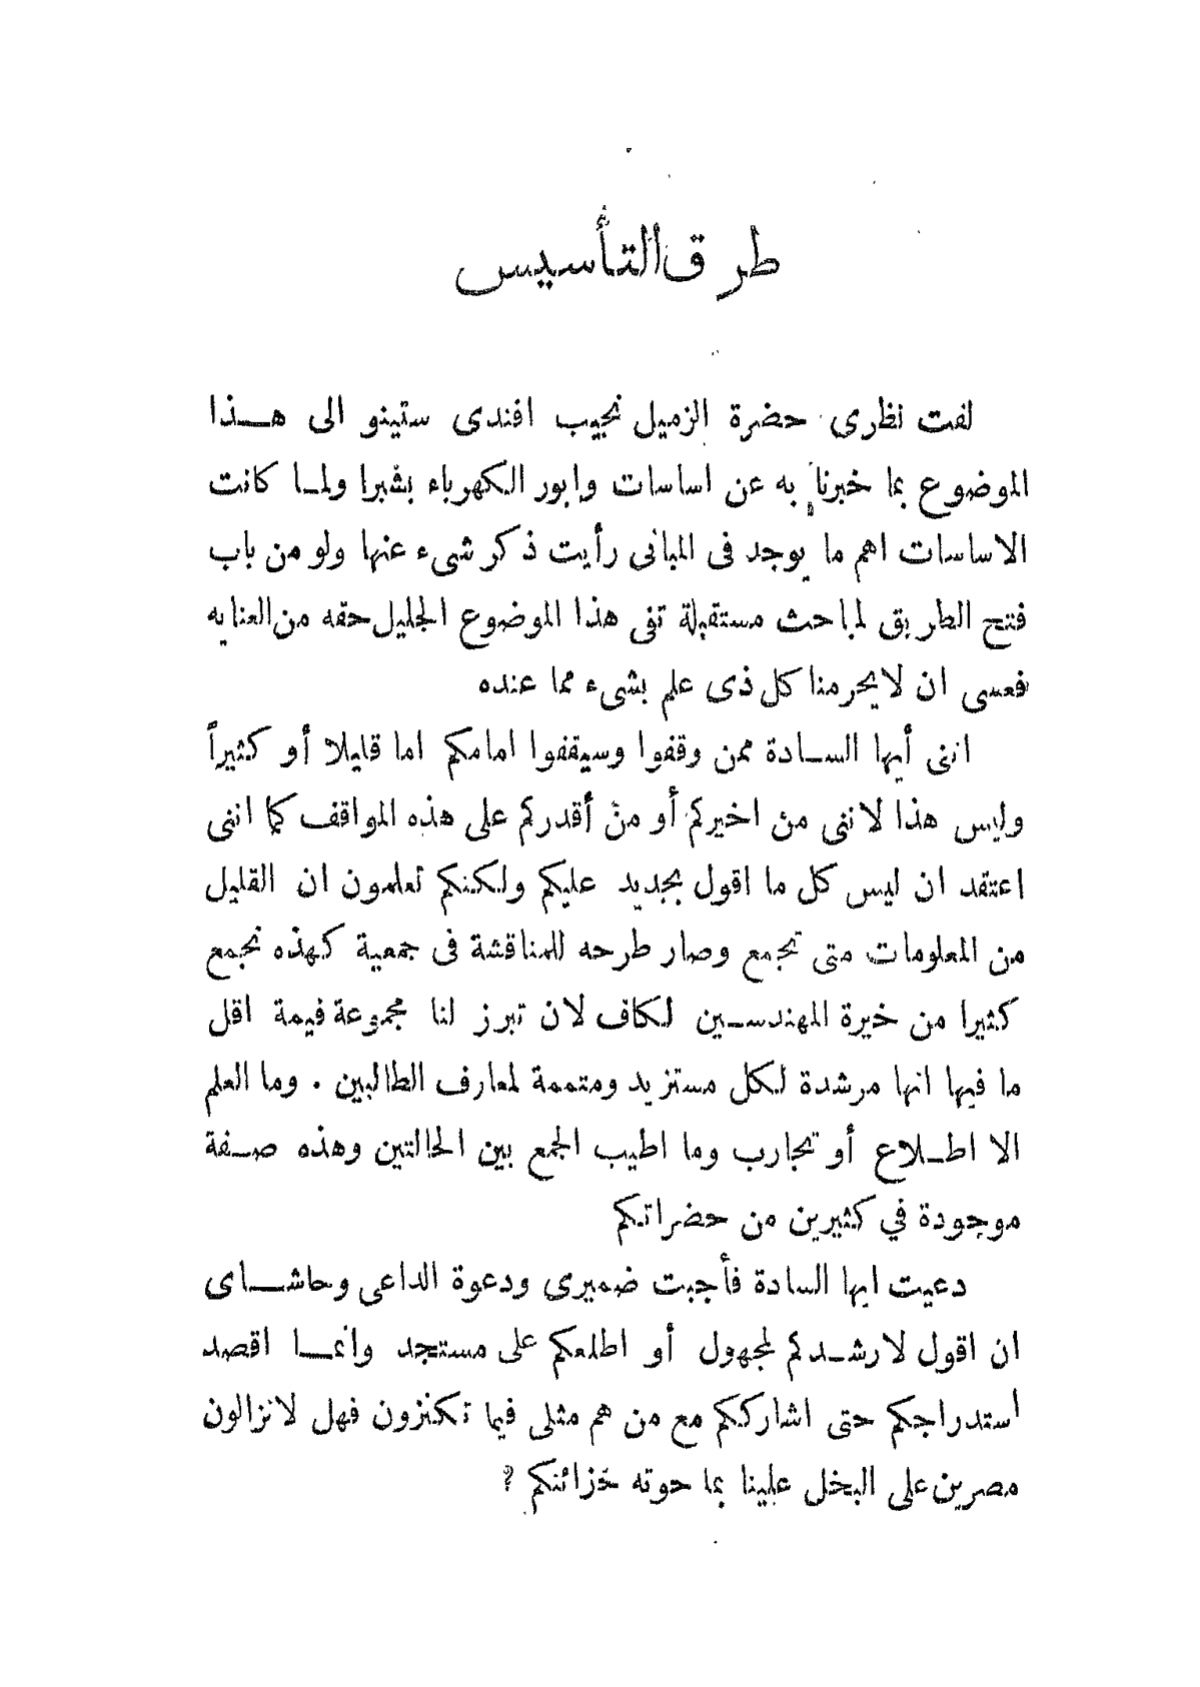 طرق التأسيس
لفت نظرى حضرة الزميل نجيب افندى ستينو الى هـذا
الموضوع بما خبرنا به عن اساسات وابور الكهرباء بشبرا ولمـا كانت
الاساسات اهم ما يوجد فى المبانى رأيت ذكر شىء عنها ولو من باب
فتح الطريق لمباحث مستقبلة تفى هذا الموضوع الجليل حقه من العنايه
فعسى ان لايحرمنا كل ذى علم بشىء مما عنده
اننى أيها السـادة ممن وقفوا وسيقفوا امامكم اما قليلا أو كثيراً
وليس هذا لاننى من اخيركم أو من أقدركم على هذه المواقف كما اننى
اعتقد ان ليس كل ما اقول بجديد عليكم ولكنكم تعلمون ان القليل
من المعلومات متى تجمع وصار طرحه للمناقشة فى جمعية كهذه تجمع
كثيرا من خيرة المهندسـين لكاف لان تبرز لنا مجموعة قيمة اقل
ما فيها انها مرشدة لكل مستزيد ومتممة لمعارف الطالبين . وما العلم
الا اطـلاع أو تجارب وما اطيب الجمع بين الحالتين وهذه صـفة
موجودة في كثيرين من حضراتكم
دعيت ايها السادة فأجبت ضميرى ودعوة الداعى وحاشـاى
ان اقول لارشـدكم لمجهول أو اطلعكم على مستجد وانمـا اقصد
أستدراجكم حتى اشارككم مع من هم مثلى فيما تكنزون فهل لاتزالون
مصرين على البخل علينا بما حوته خزائنكم ؟